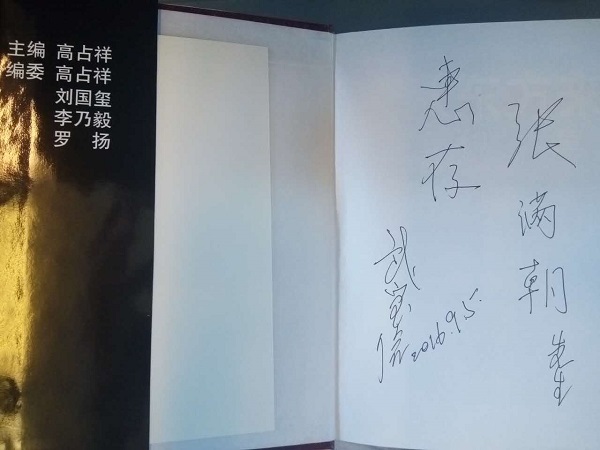 主编 高占祥
编委 高占祥
刘国玺
李乃毅
罗 扬
张满朝先生
惠存
武宝信
2016.9.5.